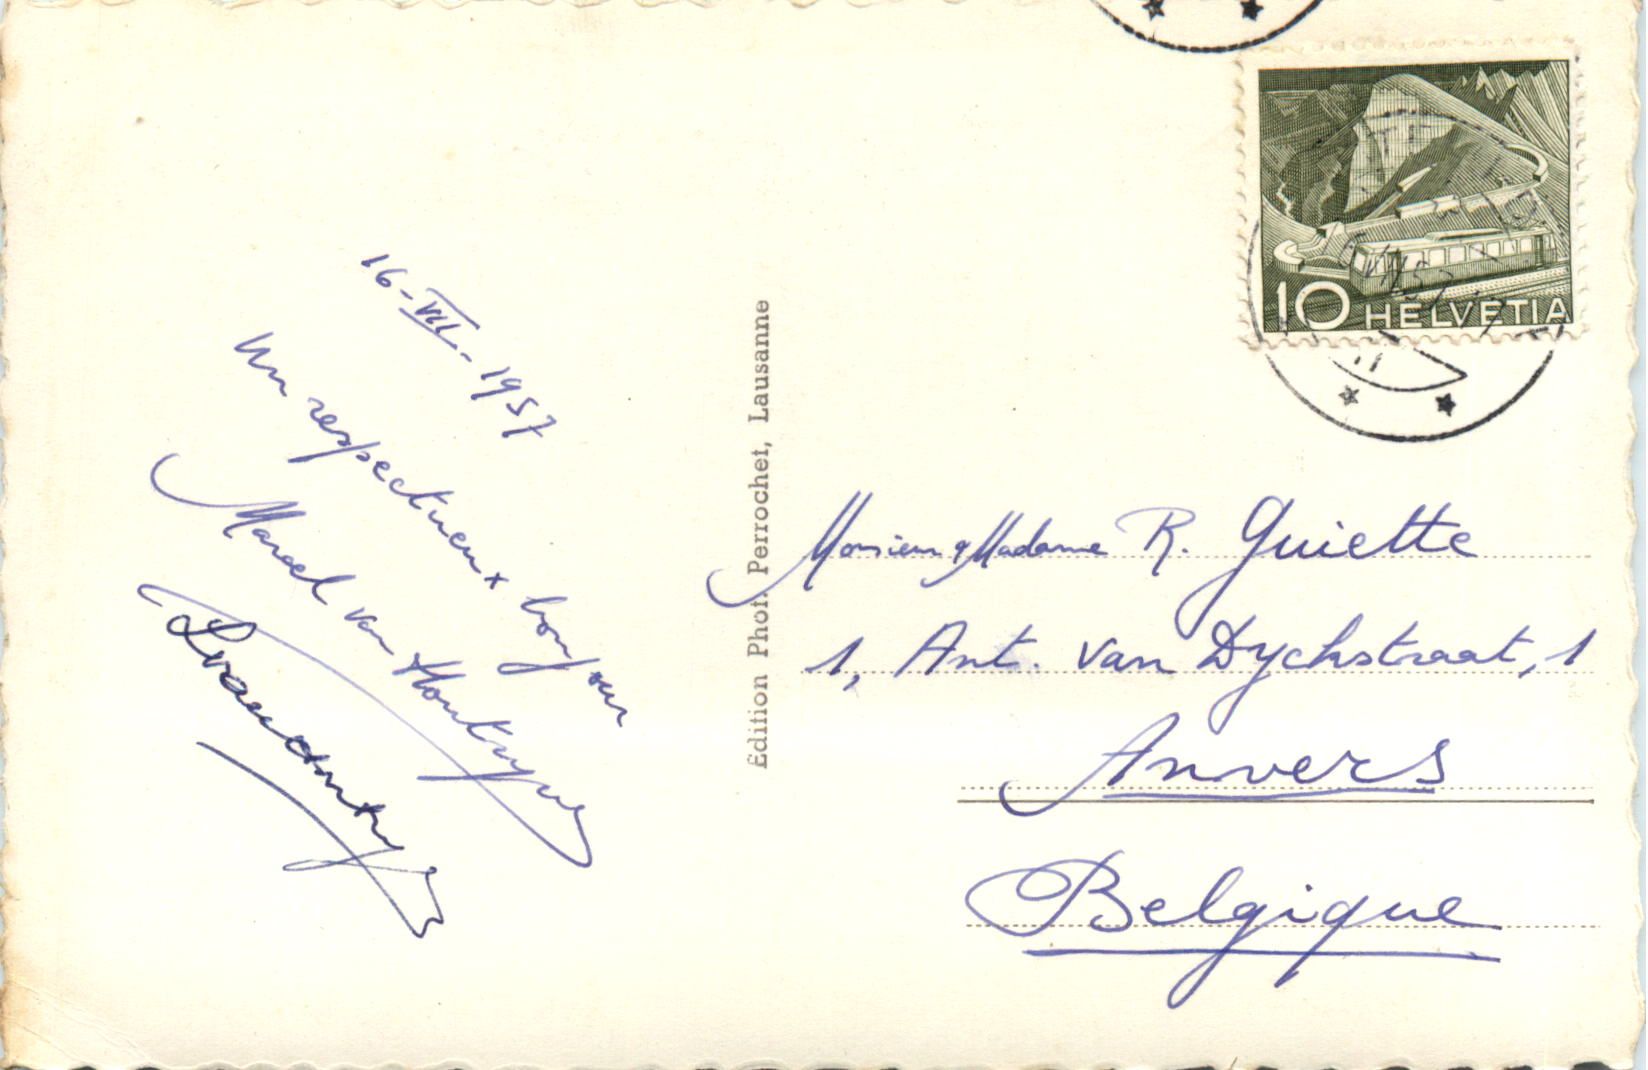 16-VII-1957
Un respectueux bonjour
Marcel van
Edition Phot. Perrochet, Lausanne
10 HELVETIA
Monsieur & Madame R. Guiette
1, Ant. van Dyckstraat, 1
Anvers
Belgique